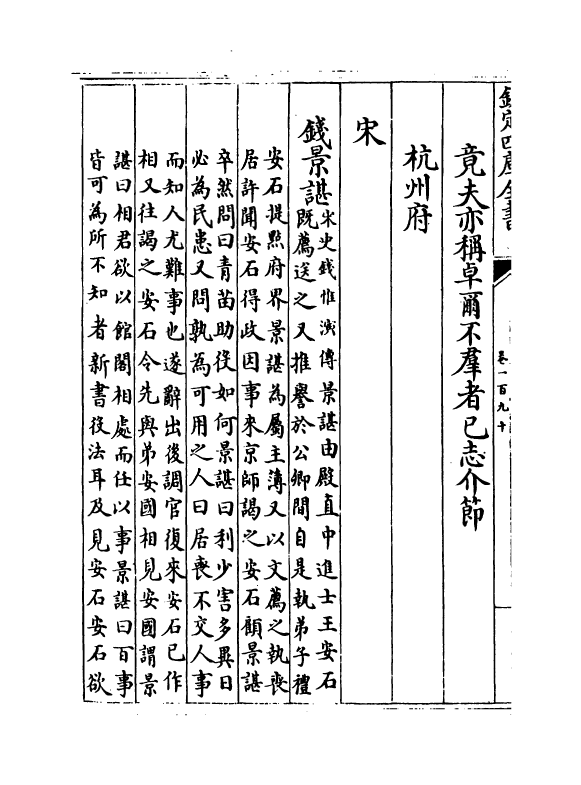 欽定四庫全書
卷一百九十
竟夫亦稱卓爾不羣者已志介節
杭州府
宋
錢景諶
宋史錢惟演傳景諶由殿直中進士王安石
既薦送之又推譽於公卿間自是執弟子禮
安石提㸃府界景諶為屬主簿又以文薦之執喪
居許聞安石得政因事來京師謁之安石顧景諶
卒然問曰青苗助役如何景諶曰利少害多異日
必為民患又問孰為可用之人曰居喪不交人事
而知人尤難事也遂辭出後調官復來安石已作
相又往謁之安石令先與弟安國相見安國謂景
諶曰相君欲以館閣相處而任以事景諶曰百事
皆可為所不知者新書役法耳及見安石安石欲